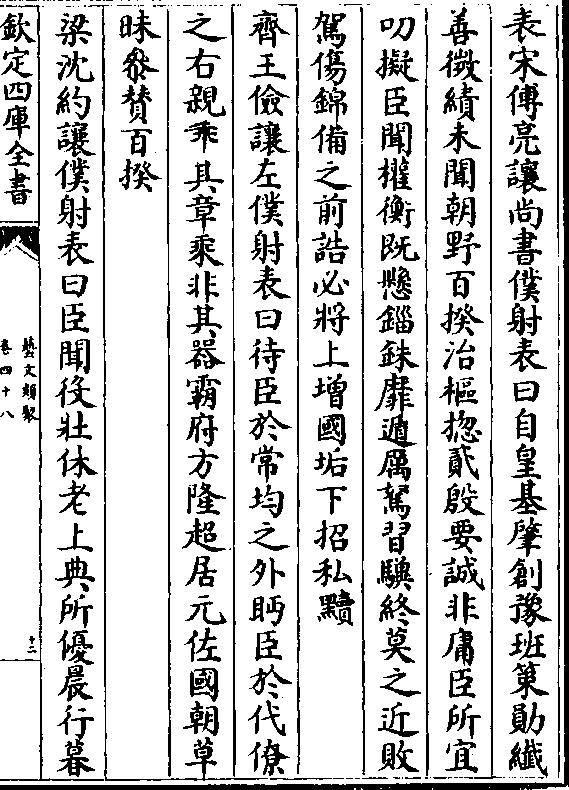 表宋傅亮讓尚書僕射表曰自皇基肇創豫班策勛纖
善微績未聞朝野百揆治樞揔貳殷要誠非庸臣所宜
叨擬臣聞權衡既懸錙銖靡遁厲駕習驥終莫之近敗
駕傷錦備之前誥必將上增國垢下招私黷
齊王儉讓左僕射表曰待臣於常均之外眄臣於代僚
之右親乖其章乘非其器霸府方隆超居元佐國朝草
昧叅贊百揆
梁沈約讓僕射表曰臣聞役壯休老上典所優晨行暮
欽定四庫全書
藝文類聚
卷四十八
十二